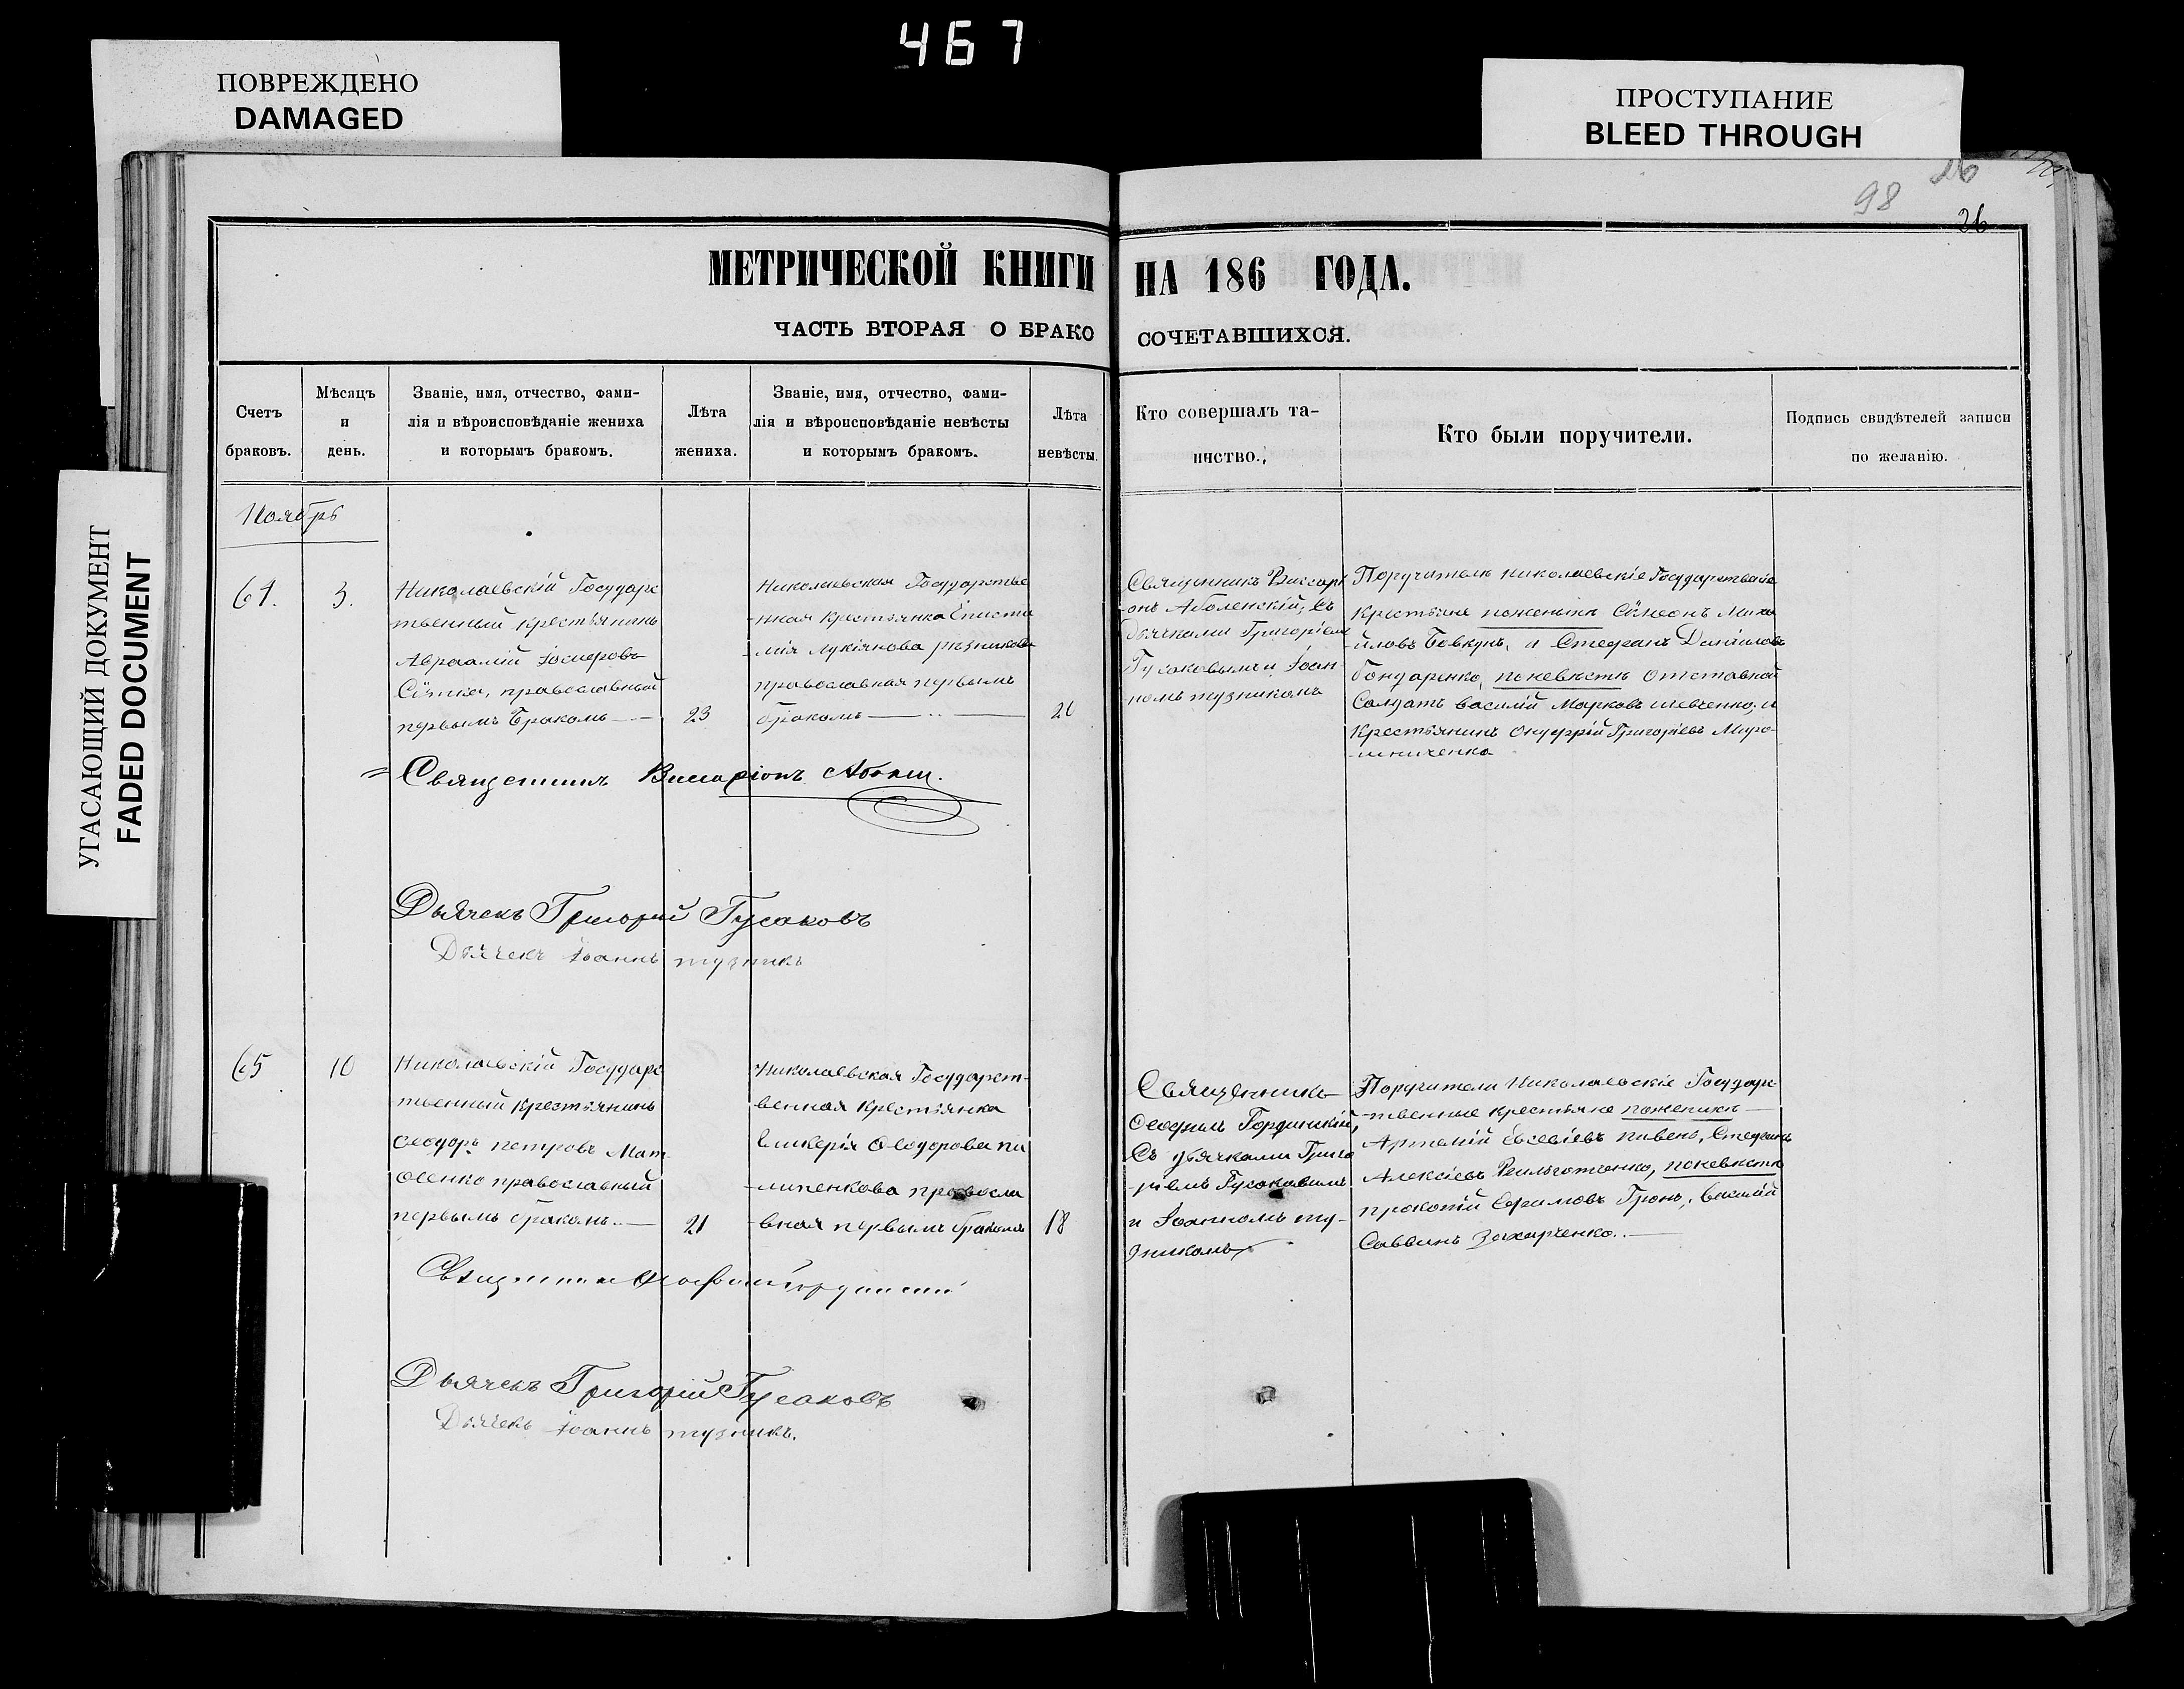 467
ПОВРЕЖДЕНО
DAMAGED
ПРОСТУПАНИЕ
BLEED THROUGH
УГАСАЮЩИЙ ДОКУМЕНТ
FADED DOCUMENT
98
26
26
МЕТРИЧЕСКОЙ КНИГИ НА 186 ГОДА.
ЧАСТЬ ВТОРАЯ О БРАКО СОЧЕТАВШИХСЯ.
Счетъ
браковъ.
Мѣсяцъ
и
день.
Званіе, имя, отчество, фами-
лія и вѣроисповѣданіе жениха
и которымъ бракомъ.
Лѣта
жениха.
Званіе, имя, отчество, фами-
лія и вѣроисповѣданіе невѣсты
и которымъ бракомъ.
Лѣта
невѣсты.
Кто совершалъ та-
инство.
Кто были поручители.
Подпись свидѣтелей записи
по желанію.
Ноябрь
3.
Николаевскій Государс
твенный крестьянинъ
Авраамій Іосифовъ
православный
первымъ бракомъ
23
Николаевская Государстве
нная крестьянка Еписти
мія Лукіянова
православная первымъ
бракомъ
Священникъ Виссарі
онъ Аболенскій, съ
дьячками Григоріемъ
Гусаковымъ и Іоан
номъ тузникомъ
Поручители николаевскіе Государствен
крестьяне поженихѣ Сѵмеонъ Миха
йловъ Бовкунъ, и Стефанъ Даніиловъ
бондаренко, поневѣстѣ отставной
Солдатъ василій Марковъ шевченко, и
крестьянинъ Онуфрій Григоріевъ Миро-
шниченко
Священникъ Виссаріонъ
Дьячекъ Григорій Гусаковъ
Дьячекъ Іоаннъ тузникъ
65
10
Николаевскій Государс
твенный крестьянинъ
Ѳеодоръ петровъ Мат
православный
первымъ бракомъ
21
Николаевская Государст-
венная крестьянка
Гликерія Ѳеодорова пи
липенкова правосла
вная первымъ бракомъ
18
Священникъ
Гординскій,
Съ дьячками Григо
ріемъ Гусаковымъ
и Іоанномъ ту-
зникомъ
Поручители Николаевскіе Государс
твенные крестьяне поженихѣ
Артемій Евсевіевъ пивень, Стефанъ
Алексіевъ поневѣстѣ
прокопій Ефимовъ Гронь, василій
Саввинъ Захарченко.
Священникъ
Дьячекъ Григорій Гусаковъ
Дьячекъ Іоаннъ тузникъ.